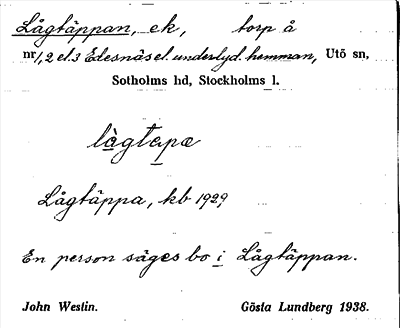 Lågtäppan, ek, torp å
nr 1, 2 el. 3 Edesnäs el. underlyd. hemman, Utö sn,
Sotholms hd, Stockholms l.
làgtepæ
Lågtäppa, kb 1929
En person säges bo i Lågtäppan.
John Westin. Gösta Lundberg 1938.